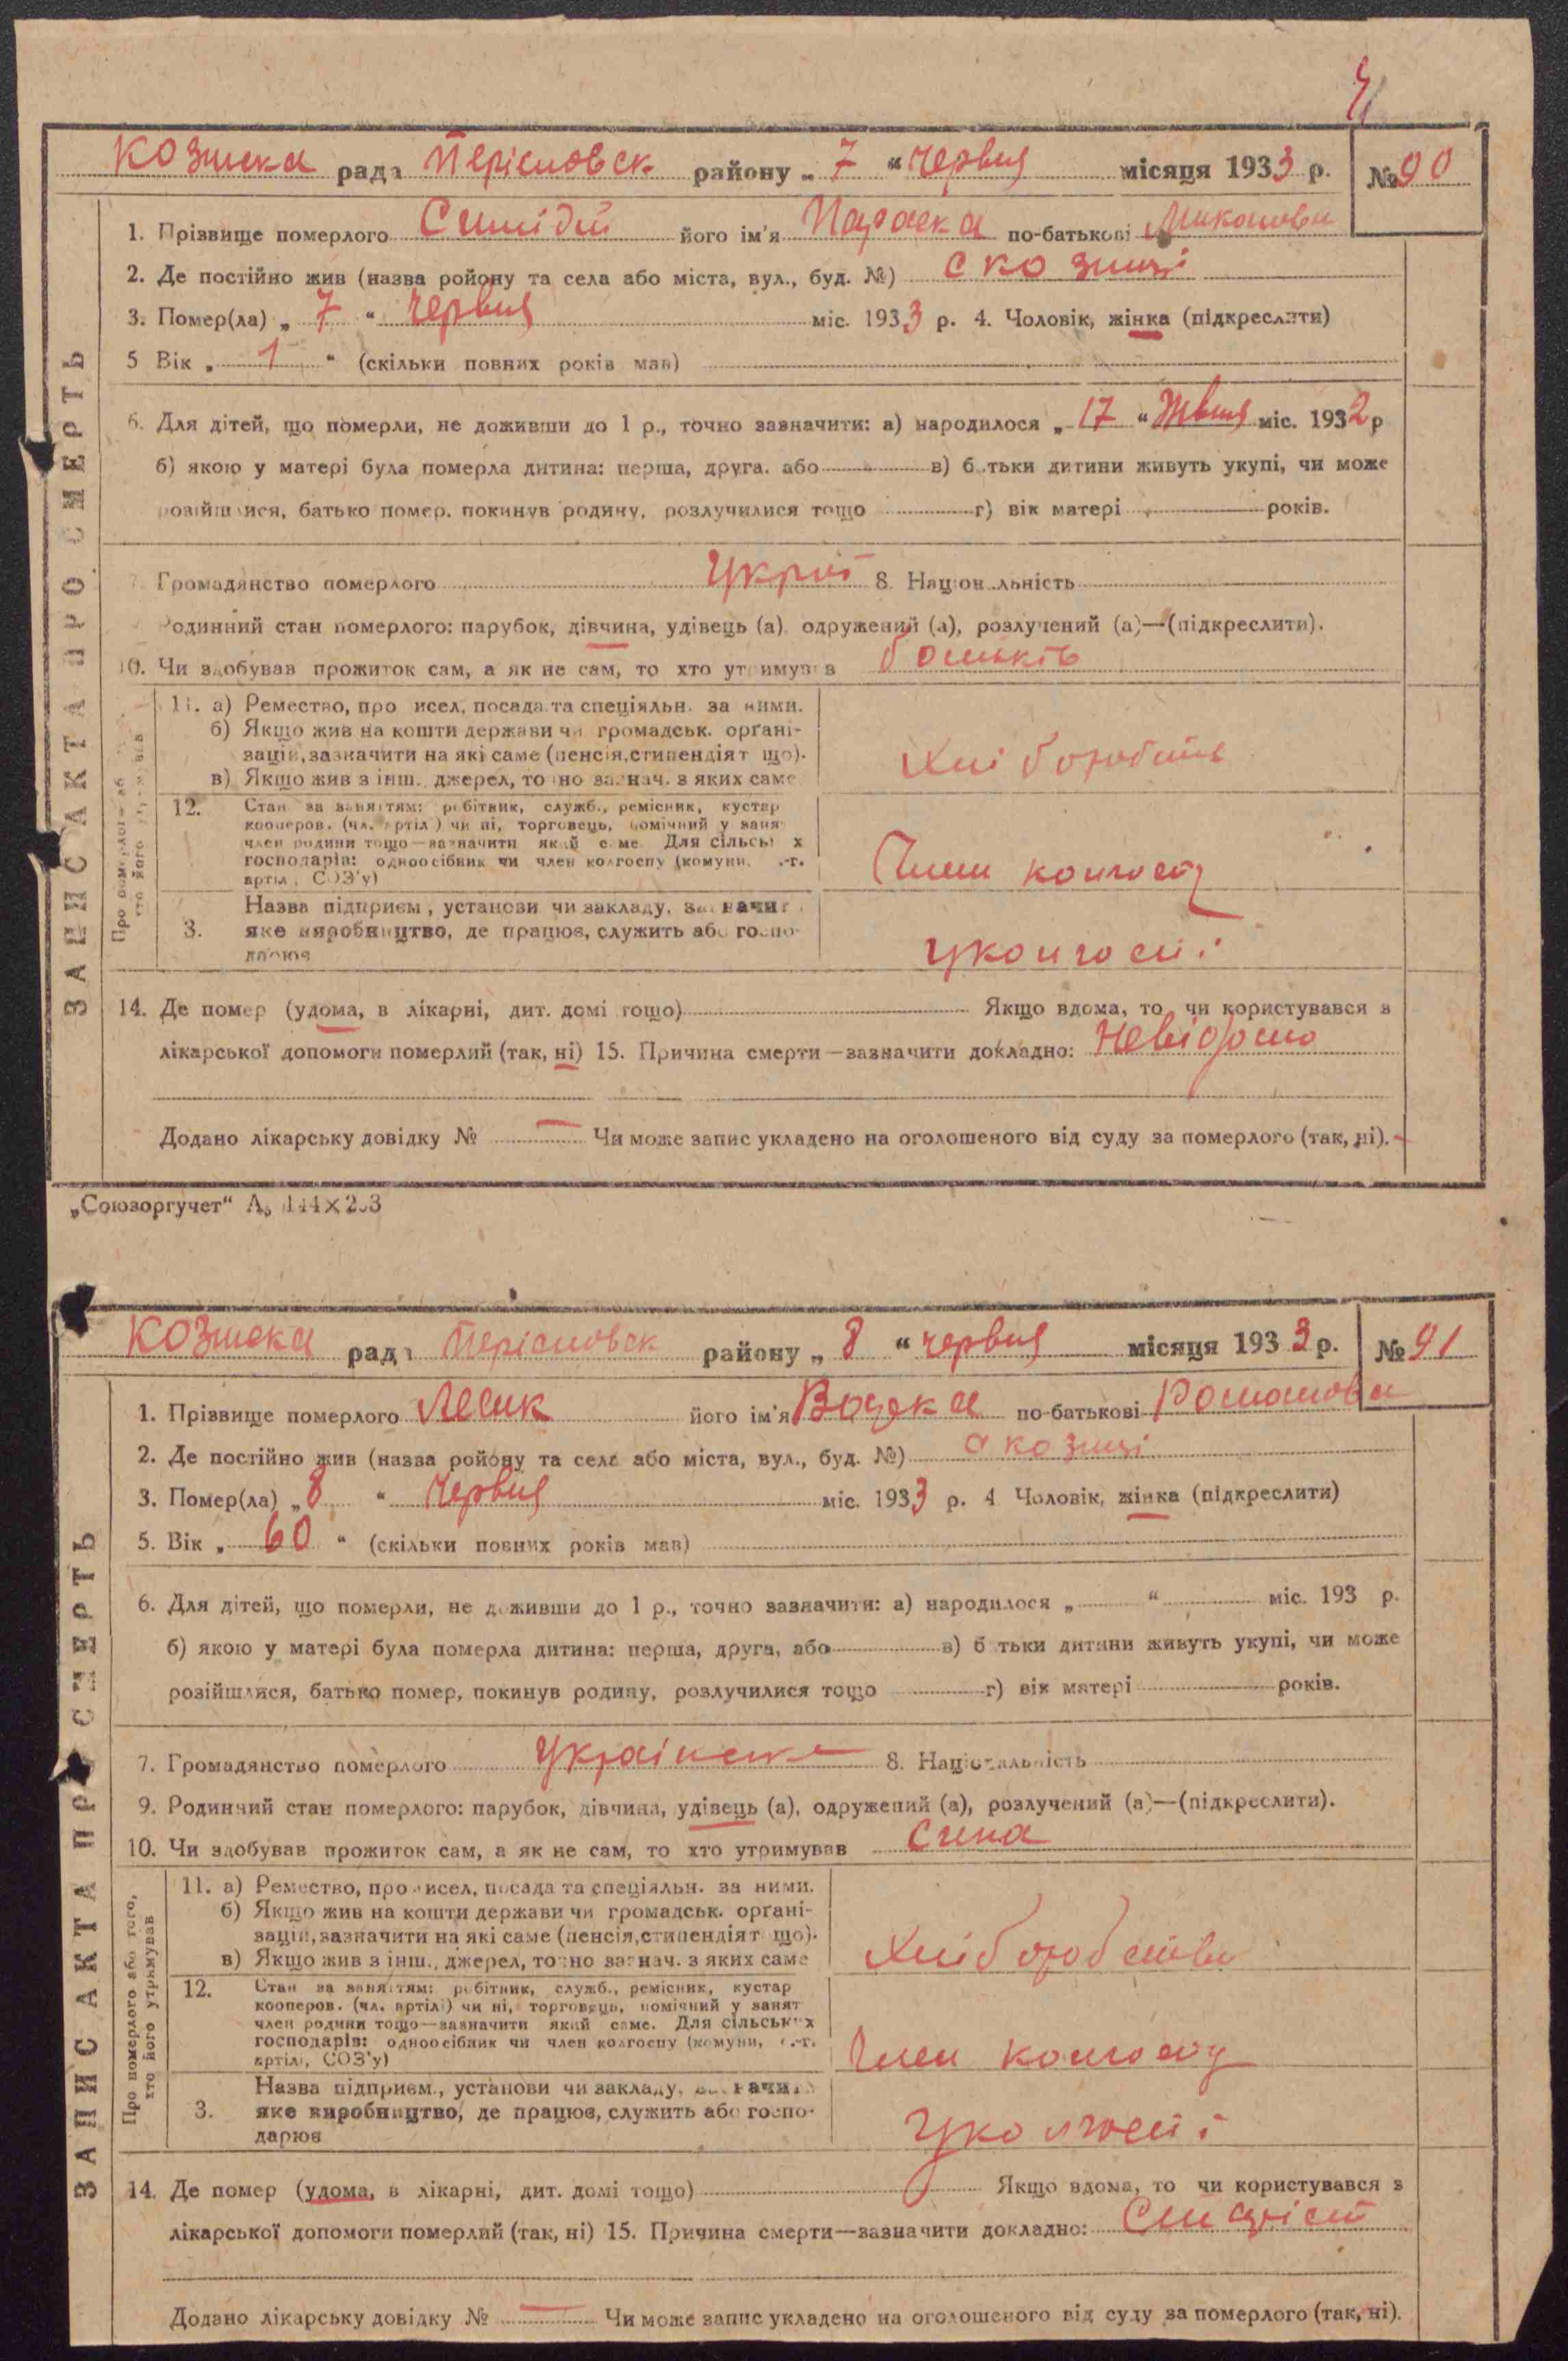 Козинска рада Перісловск району „ 7 “ червня місяця 1933 р. № 90
1. Прізвище померлого його ім'я Параска по-батькові
2. Де постійно жив (назва ройону та села або міста, вул., буд. №) с Козинці
3. Помер(ла) „ 7 “ червня міс. 1933 р. 4. Чоловік, жінка (підкреслити)
5 Вік „ 1 “ (скільки повних років мав)
6. Для дітей, що померли, не доживши до 1 р., точно зазначити: а) народилося „ 17 “ міс. 1932 р
б) якою у матері була померла дитина: перша, друга, або в) батьки дитини живуть укупі, чи може
розійшлися, батько помер, покинув родину, розлучилися тощо г) вік матері років.
7. Громадянство померлого 8. Національність
Родинний стан померлого: парубок, дівчина, удівець (а), одружений (а), розлучений (а)—(підкреслити).
10. Чи здобував прожиток сам, а як не сам, то хто утримував батьків
11. а) Ремество, про исел, посада та спеціяльн. за ними.
б) Якщо жив на кошти держави чи громадськ. органі-
зацій, зазначити на які саме (пенсія, стипендія т що).
в) Якщо жив з інш. джерел, точно зазнач. з яких саме
Хліборобств
12. Стан за заняттям: робітник, служб., ремісник, кустар
кооперов. (чл. артілі) чи ні, торговець, помічний у занят
член родини тощо—зазначити який саме. Для сільських
господарів: одноосібник чи член колгоспу (комуни, с.-г.
артілі, СОЗ'у)
Член колгоспу
Назва підприєм., установи чи закладу, зазначити
3. яке виробництво, де працює, служить або госпо-
дарює
у колгоспі
14. Де помер (удома, в лікарні, дит. домі тощо) Якщо вдома, то чи користувався з
лікарської допомоги померлий (так, ні) 15. Причина смерти—зазначити докладно: Невідомо
Додано лікарську довідку № — Чи може запис укладено на оголошеного від суду за померлого (так, ні).
ЗАПИС АКТА ПРО СМЕРТЬ
„Союзоргучет“
Козинска рада Перісловск району „ 8 “ червня місяця 1933 р. № 91
1. Прізвище померлого Лесик його ім'я по-батькові Романова
2. Де постійно жив (назва ройону та села або міста, вул., буд. №) с Козинці
3. Помер(ла) „ 8 “ червня міс. 1933 р. 4 Чоловік, жінка (підкреслити)
5. Вік „ 60 “ (скільки повних років мав)
6. Для дітей, що померли, не доживши до 1 р., точно зазначити: а) народилося „ “ міс. 193 р.
б) якою у матері була померла дитина: перша, друга, або в) батьки дитини живуть укупі, чи може
розійшлися, батько помер, покинув родину, розлучилися тощо г) вік матері років.
7. Громадянство померлого Українське 8. Національність
9. Родинний стан померлого: парубок, дівчина, удівець (а), одружений (а), розлучений (а)—(підкреслити).
10. Чи здобував прожиток сам, а як не сам, то хто утримував сина
11. а) Ремество, про исел, посада та спеціяльн. за ними.
б) Якщо жив на кошти держави чи громадськ. органі-
зацій, зазначити на які саме (пенсія, стипендія т що).
в) Якщо жив з інш., джерел, точно зазнач. з яких саме
Хліборобство
12. Стан за заняттям: робітник, служб., ремісник, кустар
кооперов. (чл. артілі) чи ні, торговець, помічний у занят
член родини тощо—зазначити який саме. Для сільських
господарів: одноосібник чи член колгоспу (комуни, с.-г.
артілі, СОЗ'у)
Член колгоспу
Назва підприєм., установи чи закладу, зазначити
3. яке виробництво, де працює, служить або госпо-
дарює
у колгоспі
Про померлого або того,
хто його утримував
14. Де помер (удома, в лікарні, дит. домі тощо) Якщо вдома, то чи користувався з
лікарської допомоги померлий (так, ні) 15. Причина смерти—зазначити докладно:
Додано лікарську довідку № — Чи може запис укладено на оголошеного від суду за померлого (так, ні).
ЗАПИС АКТА ПРО СМЕРТЬ